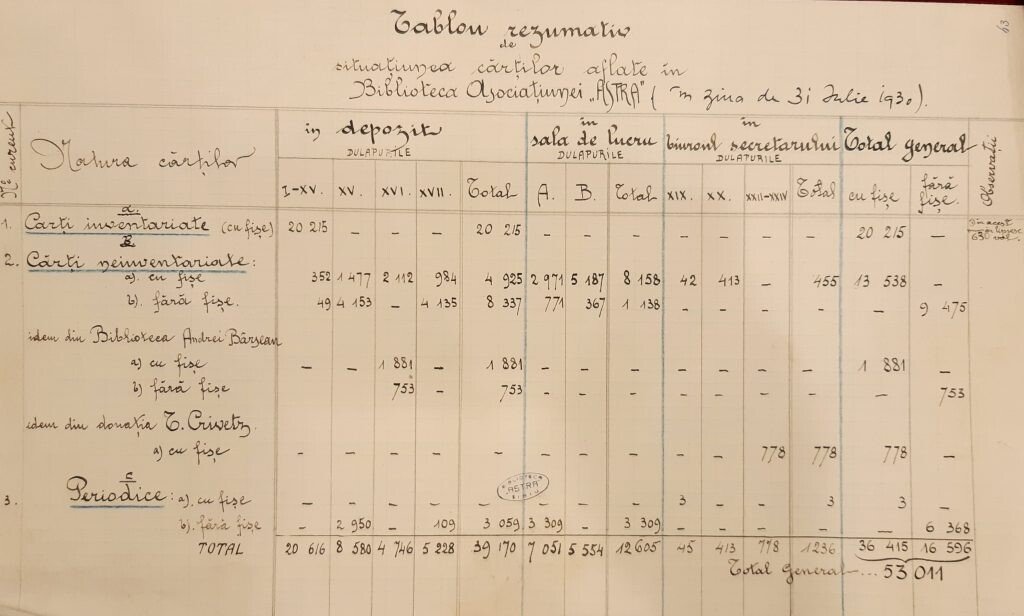 63
Tablou rezumativ
de
situațiunea cărților aflate în
Biblioteca Asociațiunei „ASTRA" (în ziua de 31 Iulie 1930).
No curent | Natura cărților | în depozit | în sala de lucru | în biuroul secretarului | Total general | Observații
DULAPURILE | DULAPURILE | DULAPURILE
I-XV. | XV. | XVI. | XVII. | Total | A. | B. | Total | XIX. | XX. | XXII-XXIV | Total | cu fișe | fără fișe.
a.
1. Cărți inventariate (cu fișe) | 20 215 | – | – | – | 20 215 | – | – | – | – | – | – | – | 20 215 | – | din acest lipsesc 630 vol.
B.
2. Cărți neinventariate:
a). cu fișe | 352 | 1 477 | 2 112 | 984 | 4 925 | 2 971 | 5 187 | 8 158 | 42 | 413 | – | 455 | 13 538 | –
b). fără fișe. | 49 | 4 153 | – | 4 135 | 8 337 | 771 | 367 | 1 138 | – | – | – | – | – | 9 475
idem din Biblioteca Andrei Bârsean
a) cu fișe | – | – | 1 881 | – | 1 881 | – | – | – | – | – | – | – | 1 881 | –
b) fără fișe | 753 | 753 | – | – | – | – | – | – | – | – | 753
idem din donația T. Crivetz.
a) cu fișe | – | – | – | – | – | – | – | – | – | – | 778 | 778 | 778 | –
C
3. Periodice: a). cu fișe | – | – | – | – | – | – | – | – | 3 | 3 | 3 | –
BIBLIOTECA "ASTRA" SIBIU
b). fără fișe | – | 2 950 | – | 109 | 3 059 | 3 309 | – | 3 309 | – | – | – | – | – | 6 368
TOTAL | 20 616 | 8 580 | 4 746 | 5 228 | 39 170 | 7 051 | 5 554 | 12 605 | 45 | 413 | 778 | 1236 | 36 415 | 16 596
Total General ... 53 011